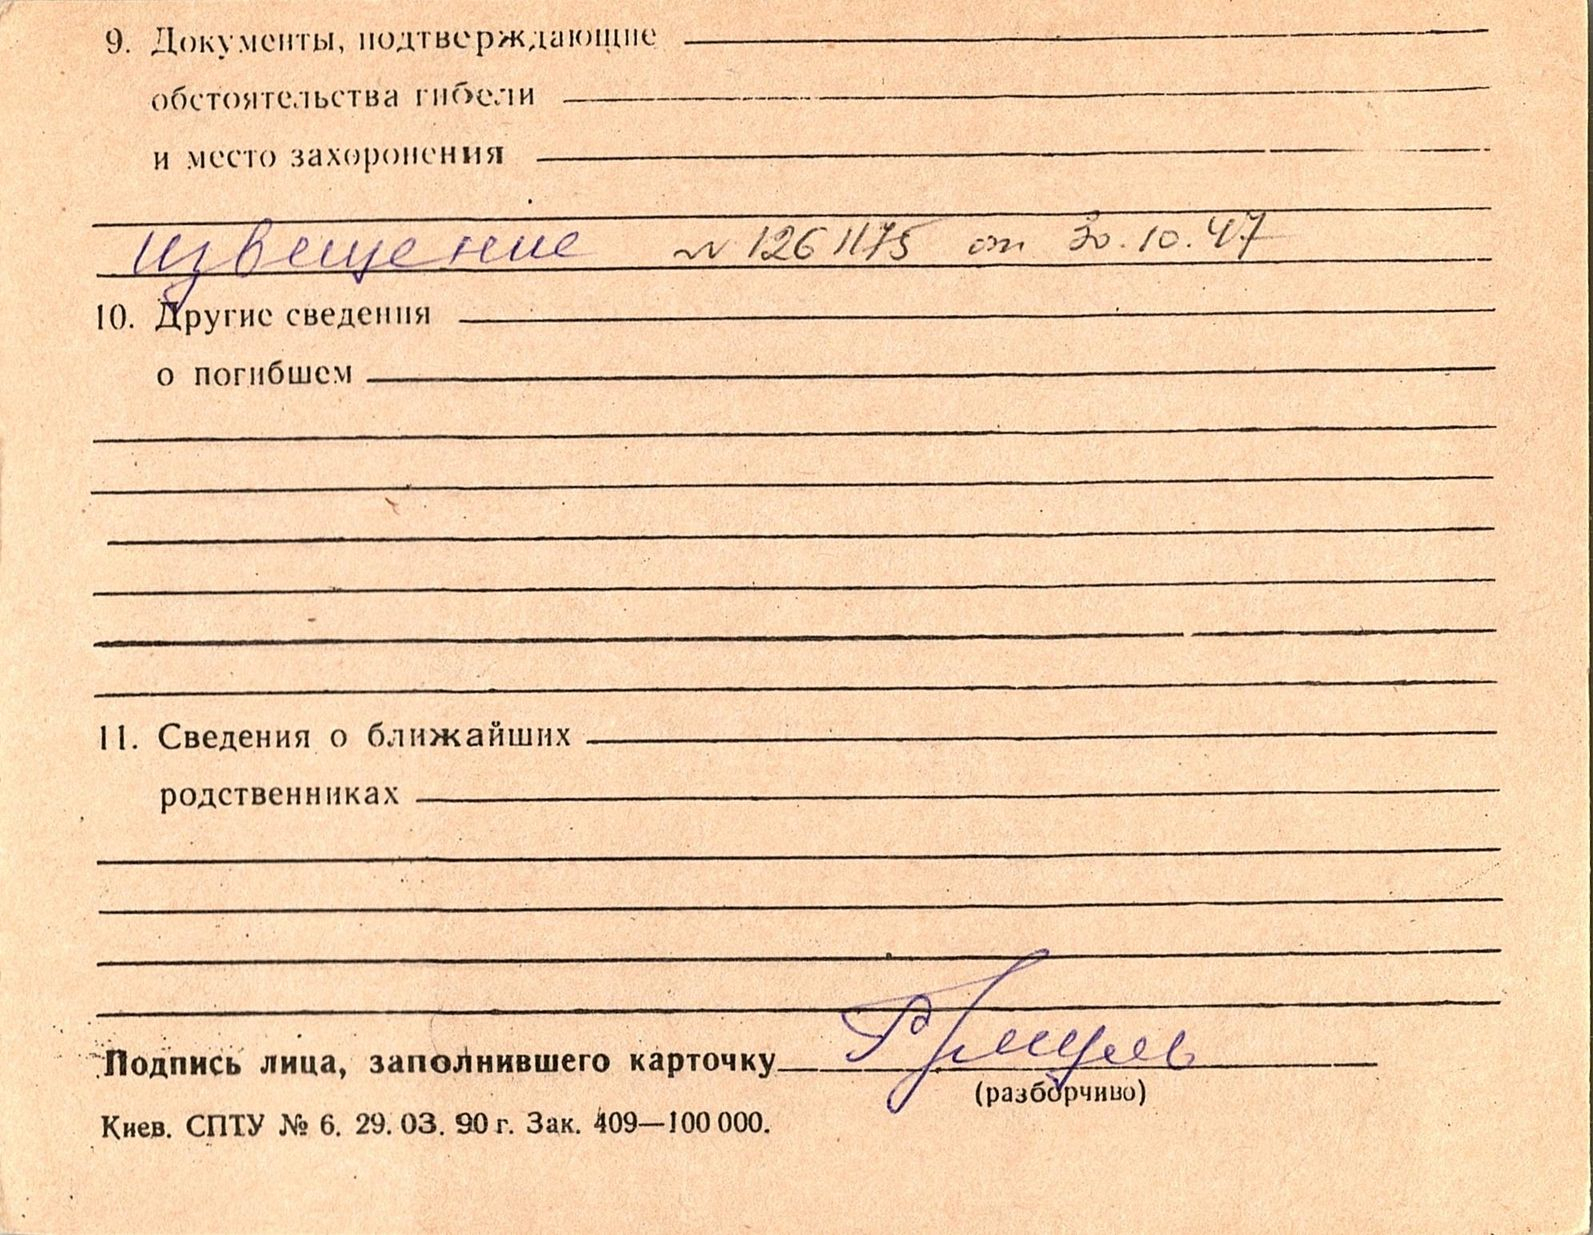 9. Документы, подтверждающие
обстоятельства гибели
и место захоронения
извещение № 1261175 от 30.10.47
10. Другие сведения
о погибшем
11. Сведения о ближайших
родственниках
Подпись лица, заполнившего карточку
(разборчиво)
Киев. СПТУ № 6. 29. 03. 90 г. Зак. 409—100 000.